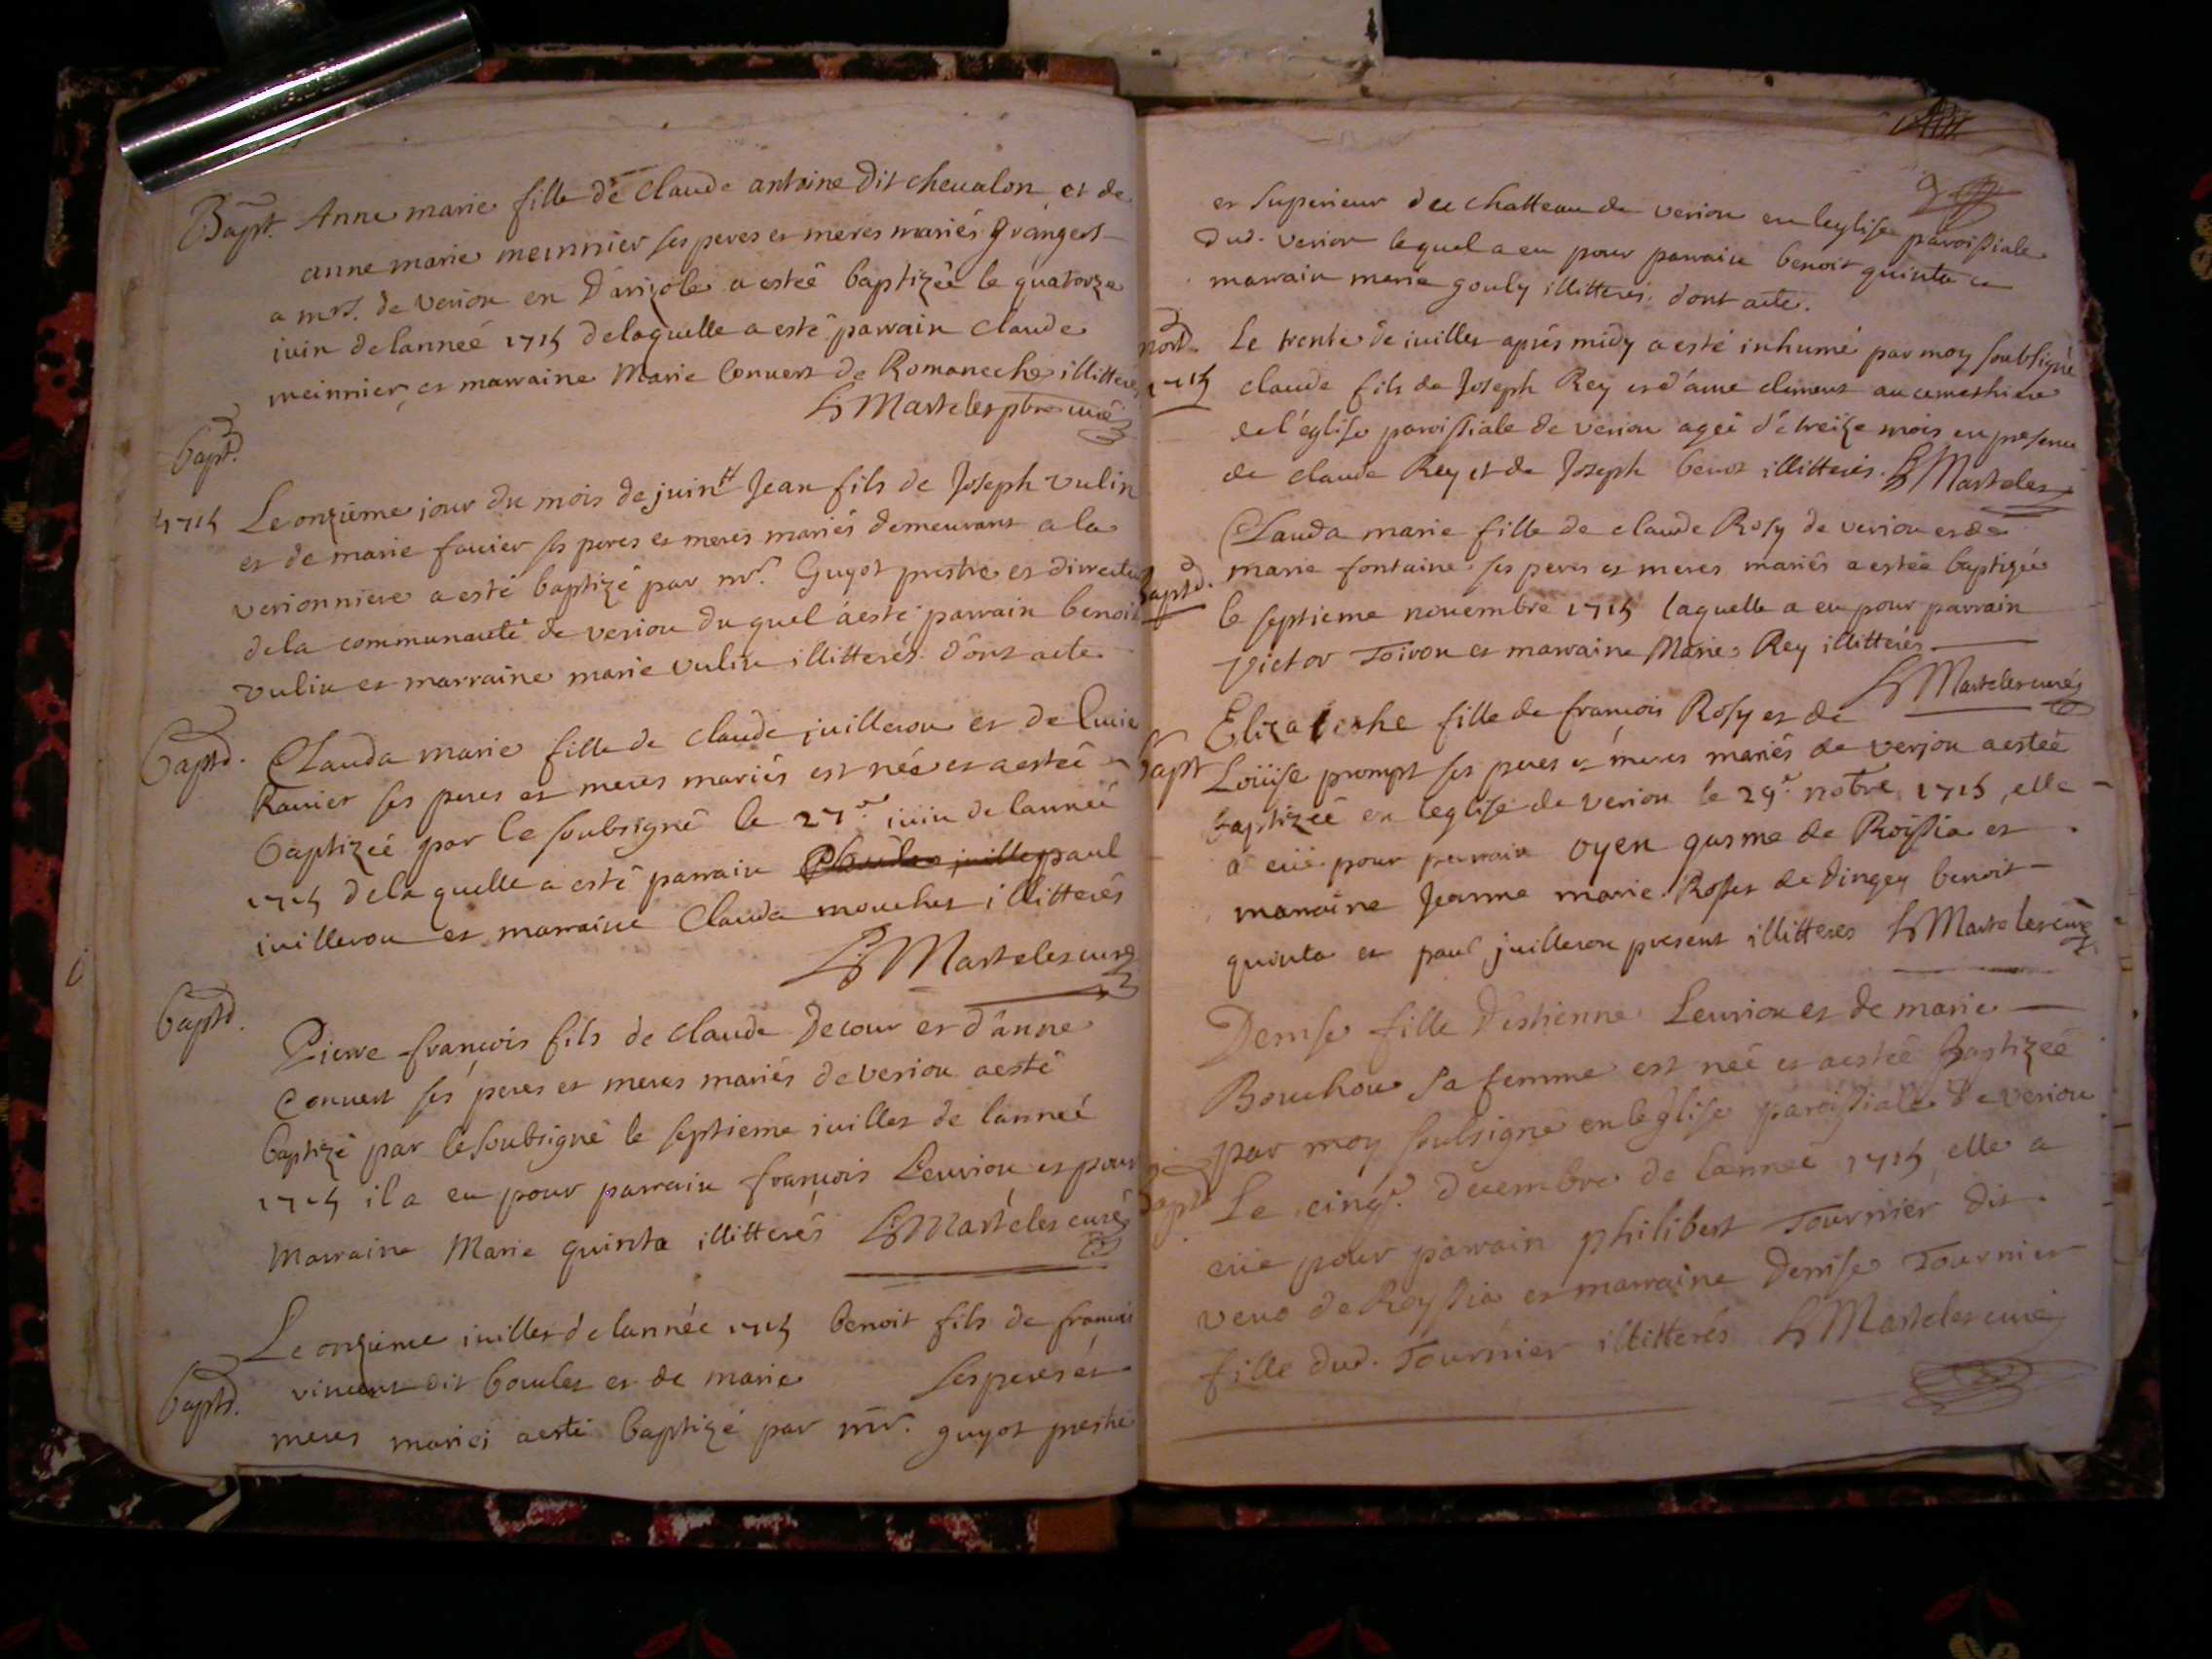 Bapt. Anne marie fille de Claude antoine dit chevalon et de
anne marie meinnier ses peres et meres mariés grangers
a mr. de verion en a estée baptizée le quatorze
iuin de lanneé 1715 de laquelle a esté parrain Claude
meinnier et marraine Marie Convert de Romaneche illitterés
Martelet ptre curé
bapt.
1715 Le onzieme jour du mois de juin Jean fils de Joseph vulin
et de marie favier ses peres et meres mariés demeurant a la
verionniere a esté baptizé par mr. Guyot prestre et directeur
de la communauté de verion du quel a esté parrain benoit
vulin et marraine marie vulin illitterés dont acte
baptd. Clauda marie fille de Claude juilleron et de
ses peres et meres mariés est née et a estée
baptizée par le soubsigné le 27e. iuin de lanneé
1715 de la quelle a esté parrain paul
iuilleron et marraine Clauda mouchet illitterés
Martelet curé
baptd.
Pierre françois fils de Claude Decour et d'anne
Convert ses peres et meres mariés de verion a esté
baptizé par le soubsigné le septieme iuillet de lanneé
1715 il a eu pour parrain françois Levrion et pour
Marraine Marie quinta illitterés Martelet curé
Le onzieme iuillet de lannée 1715 benoit fils de françois
vincent dit boulet et de marie ses peres et
baptd.
meres mariés a esté baptizé par mr. guyot prestre
et superieur du chatteau de verion en leglise paroissiale
dud. verion lequel a eu pour parrain benoit quinta et
marrain marie gouly illitterés dont acte.
mort. Le trente de iuillet aprés midy a esté inhumé par moy soubsigné
1715 Claude fils de Joseph Rey et d'anne clement au cemethiere
de l'église paroissiale de verion agé de treize mois en presence
de claude Rey et de Joseph benoit illitterés. Martelet
Clauda marie fille de claude Rosy de verion et de
baptd. marie fontaine ses peres et meres mariés a estée baptizée
le septieme novembre 1715 laquelle a eu pour parrain
victor Toiron et marraine Marie Rey illitterés
Martelet curé
Elizabethe fille de françois Rosy et de
bapt Loüise prompt ses peres et meres mariés de verjon a estée
baptizée en leglise de verion le 29e. nobre 1715, elle
a eüe pour parrain oyen gasme de Roissia et
marraine Jeanne marie Rosset de dingey benoit
quinta et paul juilleron present illitteres Martelet curé
Denise fille d'estienne Levrion et de marie
Bouchou sa femme est née et a estée baptizée
par moy soubsigné en leglise paroissiale de verion
bapt. Le cinqe. decembre de lanneé 1715 elle a
eüe pour parrain philibert Tournier dit
de Royssia et marraine Denise Tournier
fille dud. Tournier illitterés Martelet curé